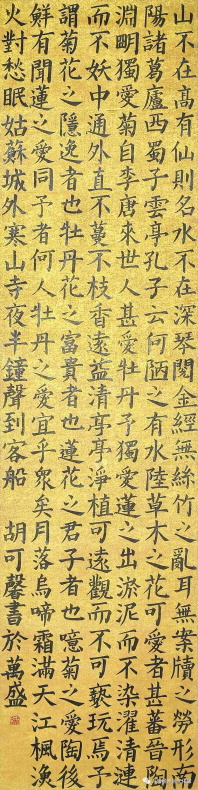 山不在高有仙則名水不在深琴閱金經無絲竹之亂耳無案牘之勞形南
陽諸葛廬西蜀子雲亭孔子云何陋之有水陸草木之花可愛者甚蕃晉陶
淵明獨愛菊自李唐來世人甚愛牡丹予獨愛蓮之出淤泥而不染濯清漣
而不妖中通外直不蔓不枝香遠益清亭亭淨植可遠觀而不可褻玩焉予
謂菊花之隱逸者也牡丹花之富貴者也蓮花之君子者也噫菊之愛陶後
鮮有聞蓮之愛同予者何人牡丹之愛宜乎眾矣月落烏啼霜滿天江楓漁
火對愁眠姑蘇城外寒山寺夜半鐘聲到客船 胡可馨書於萬盛